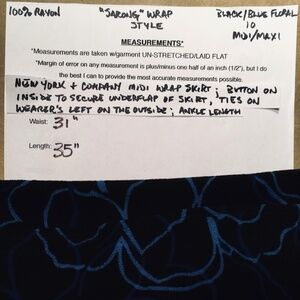 100% RAYON "SARONG" WRAP STYLE BLACK/BLUE FLORAL
10
MIDI/MAXI
MEASUREMENTS*
*Measurements are taken w/garment UN-STRETCHED/LAID FLAT
*Margin of error on any measurement is plus/minus one half of an inch (1/2"), but I do
the best I can to provide the most accurate measurements possible.
NEW YORK + COMPANY MIDI WRAP SKIRT; BUTTON ON
INSIDE TO SECURE UNDERFLAP OF SKIRT; TIES ON
WEARER'S LEFT ON THE OUTSIDE; ANKLE LENGTH
Waist: 31"
Length: 35"